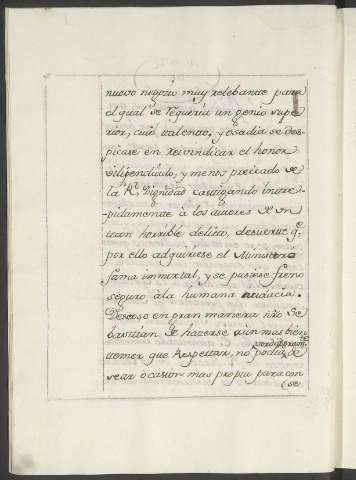 nuevo negozio muy relebante para
el qual se requeria un genio supe
rior, cuio talento, y osadia se des
picase en reivindicar el honor
vilipendiado, y menos preciado de
la Rl. Dignidad castigando intre-
-pidamente à los autores de un
tan horrible delito, desuerte qe.
por ello adquiriese el Ministerio
fama inmortal, y se pusiese freno
seguro, àla humana audacia.
Deseoso en gran manera não Se
bastitian de hacerse mas bien
temer que Respettar, no podia, de
sear ocasion mas propia para con
(se